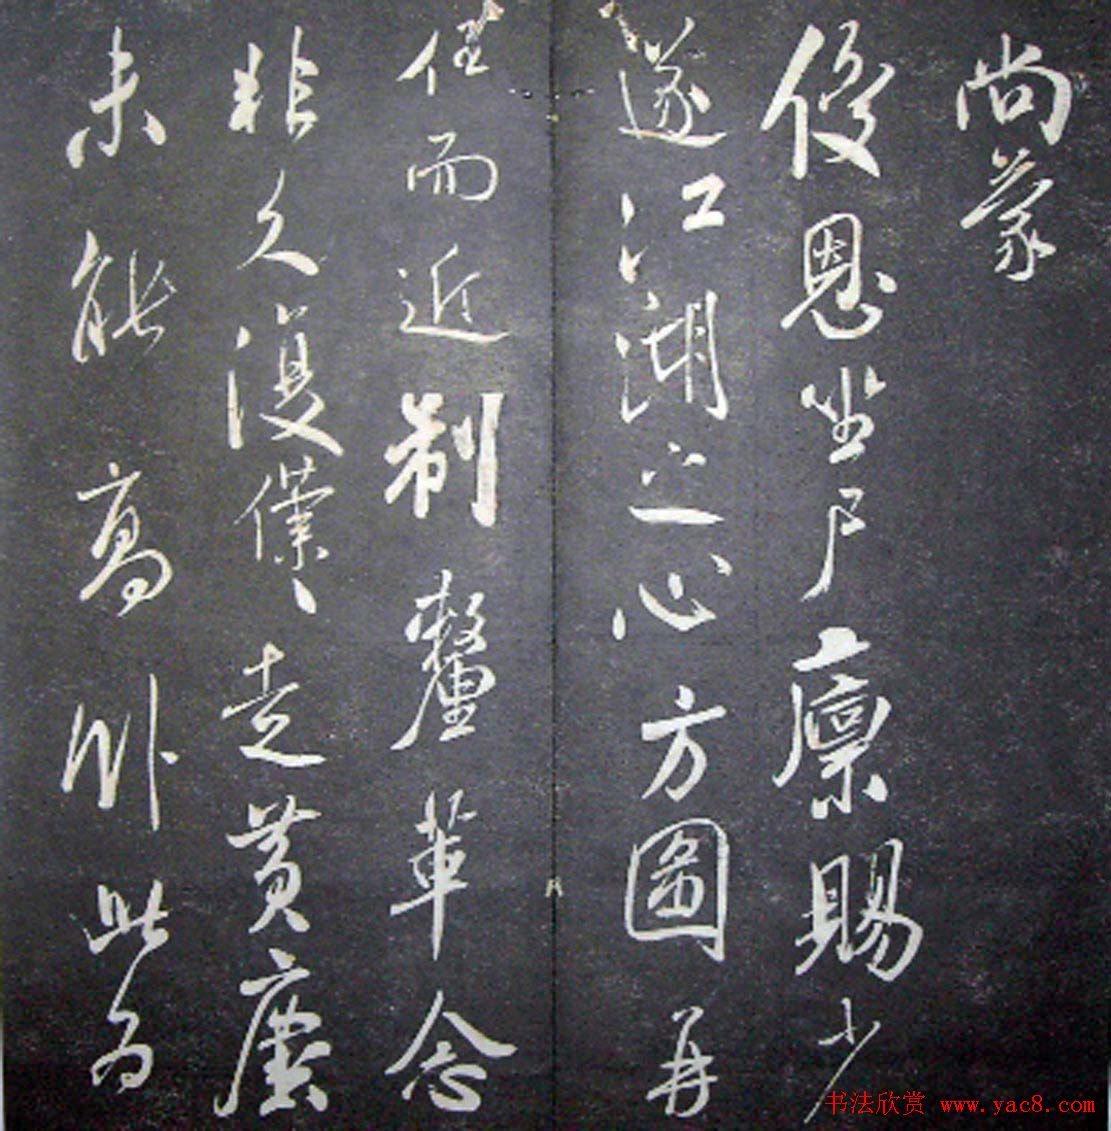 尚蒙
優恩坐尸廩賜少
遂江湖之心方圖再
任而近制釐革念
非久復僕僕走黄塵
未能高卧此為
书法欣赏 www.yac8.com